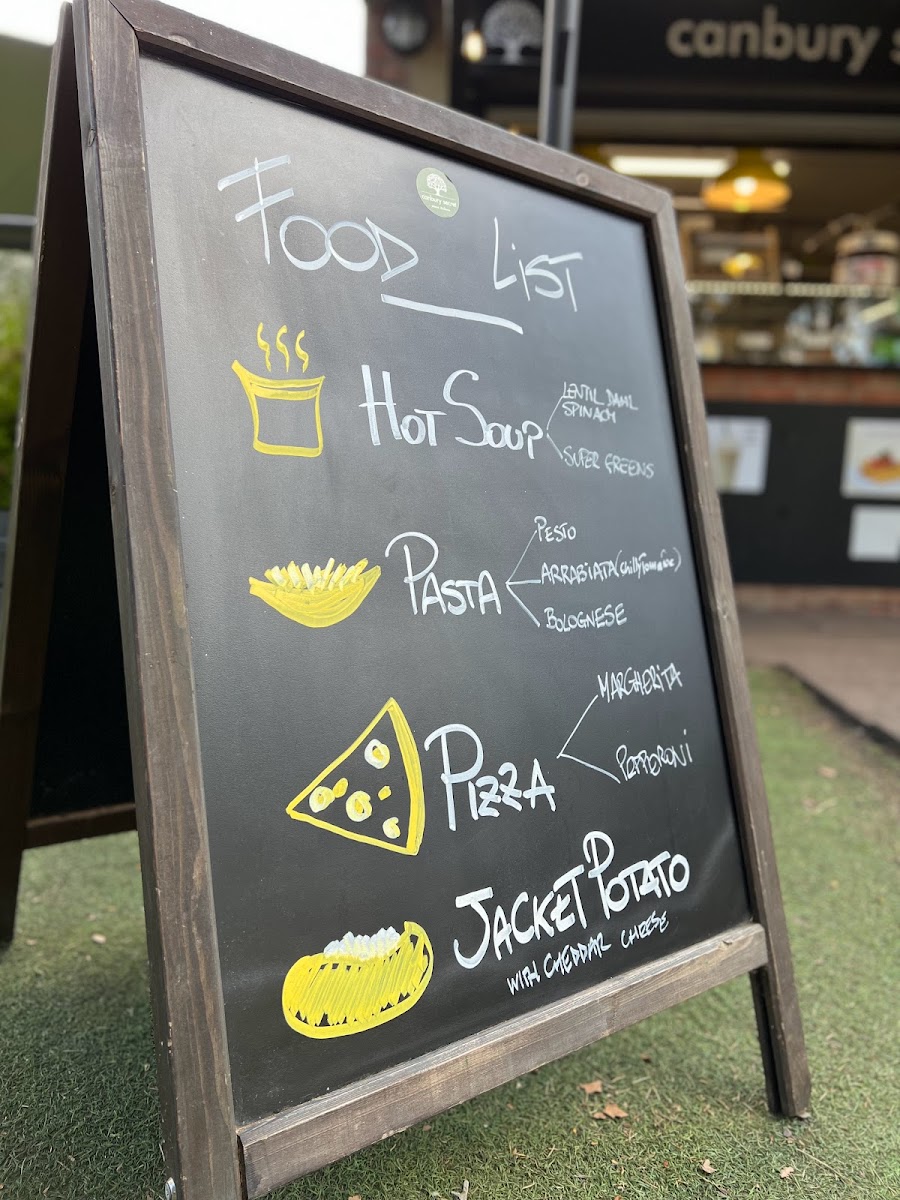 canbury s
FOOD LIST
HOT SOUP
LENTIL DAHL
SPINACH
SUPER GREENS
PASTA
PESTO
ARRABIATA (chilly Tomatoe)
BOLOGNESE
PIZZA
MARGHERITA
PEPPERONI
JACKET POTATO
WITH CHEDDAR CHEESE